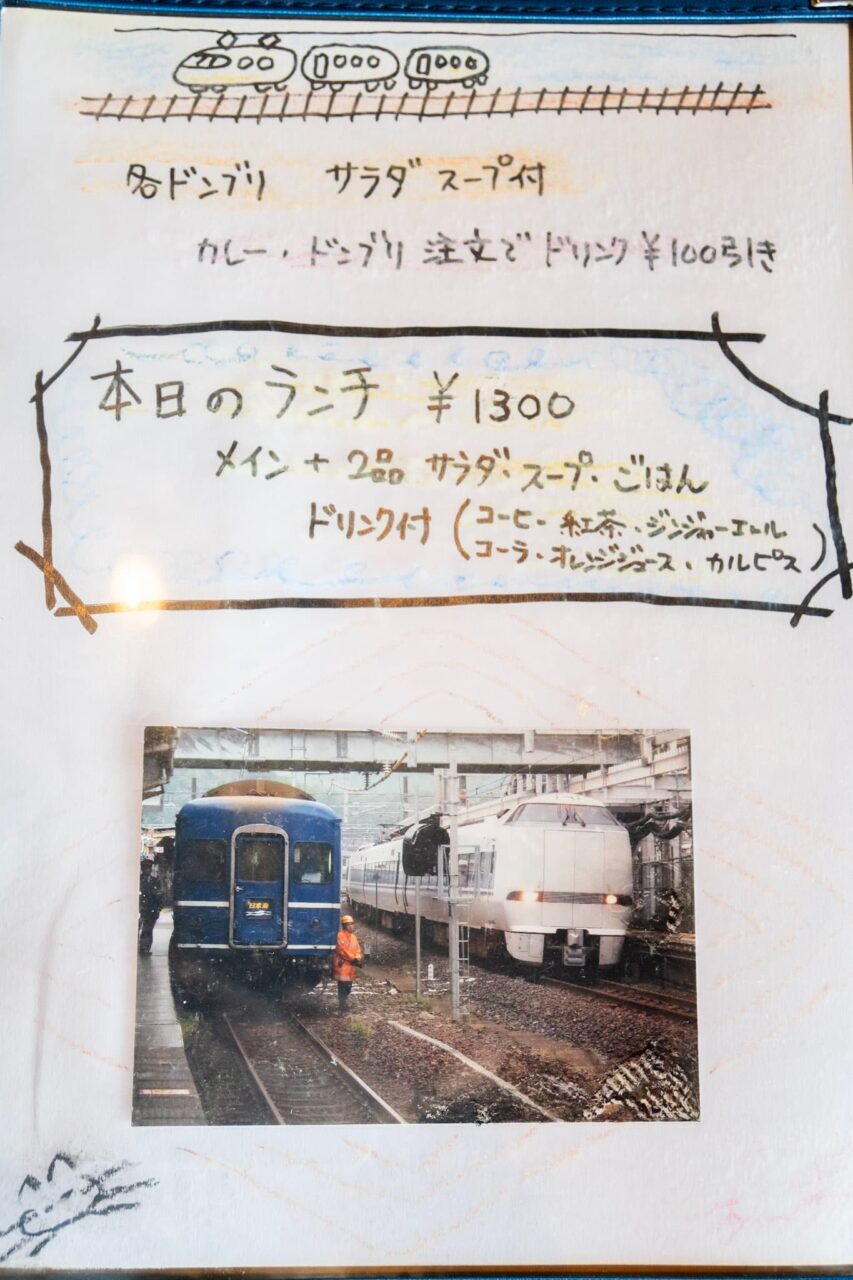 各ドンブリ サラダ スープ付
カレー・ドンブリ 注文で ドリンク ¥100引き
本日のランチ ¥1300
メイン + 2品 サラダ・スープ・ごはん
ドリンク付 (コーヒー・紅茶・ジンジャーエール
コーラ・オレンジジュース・カルピス)
日本海